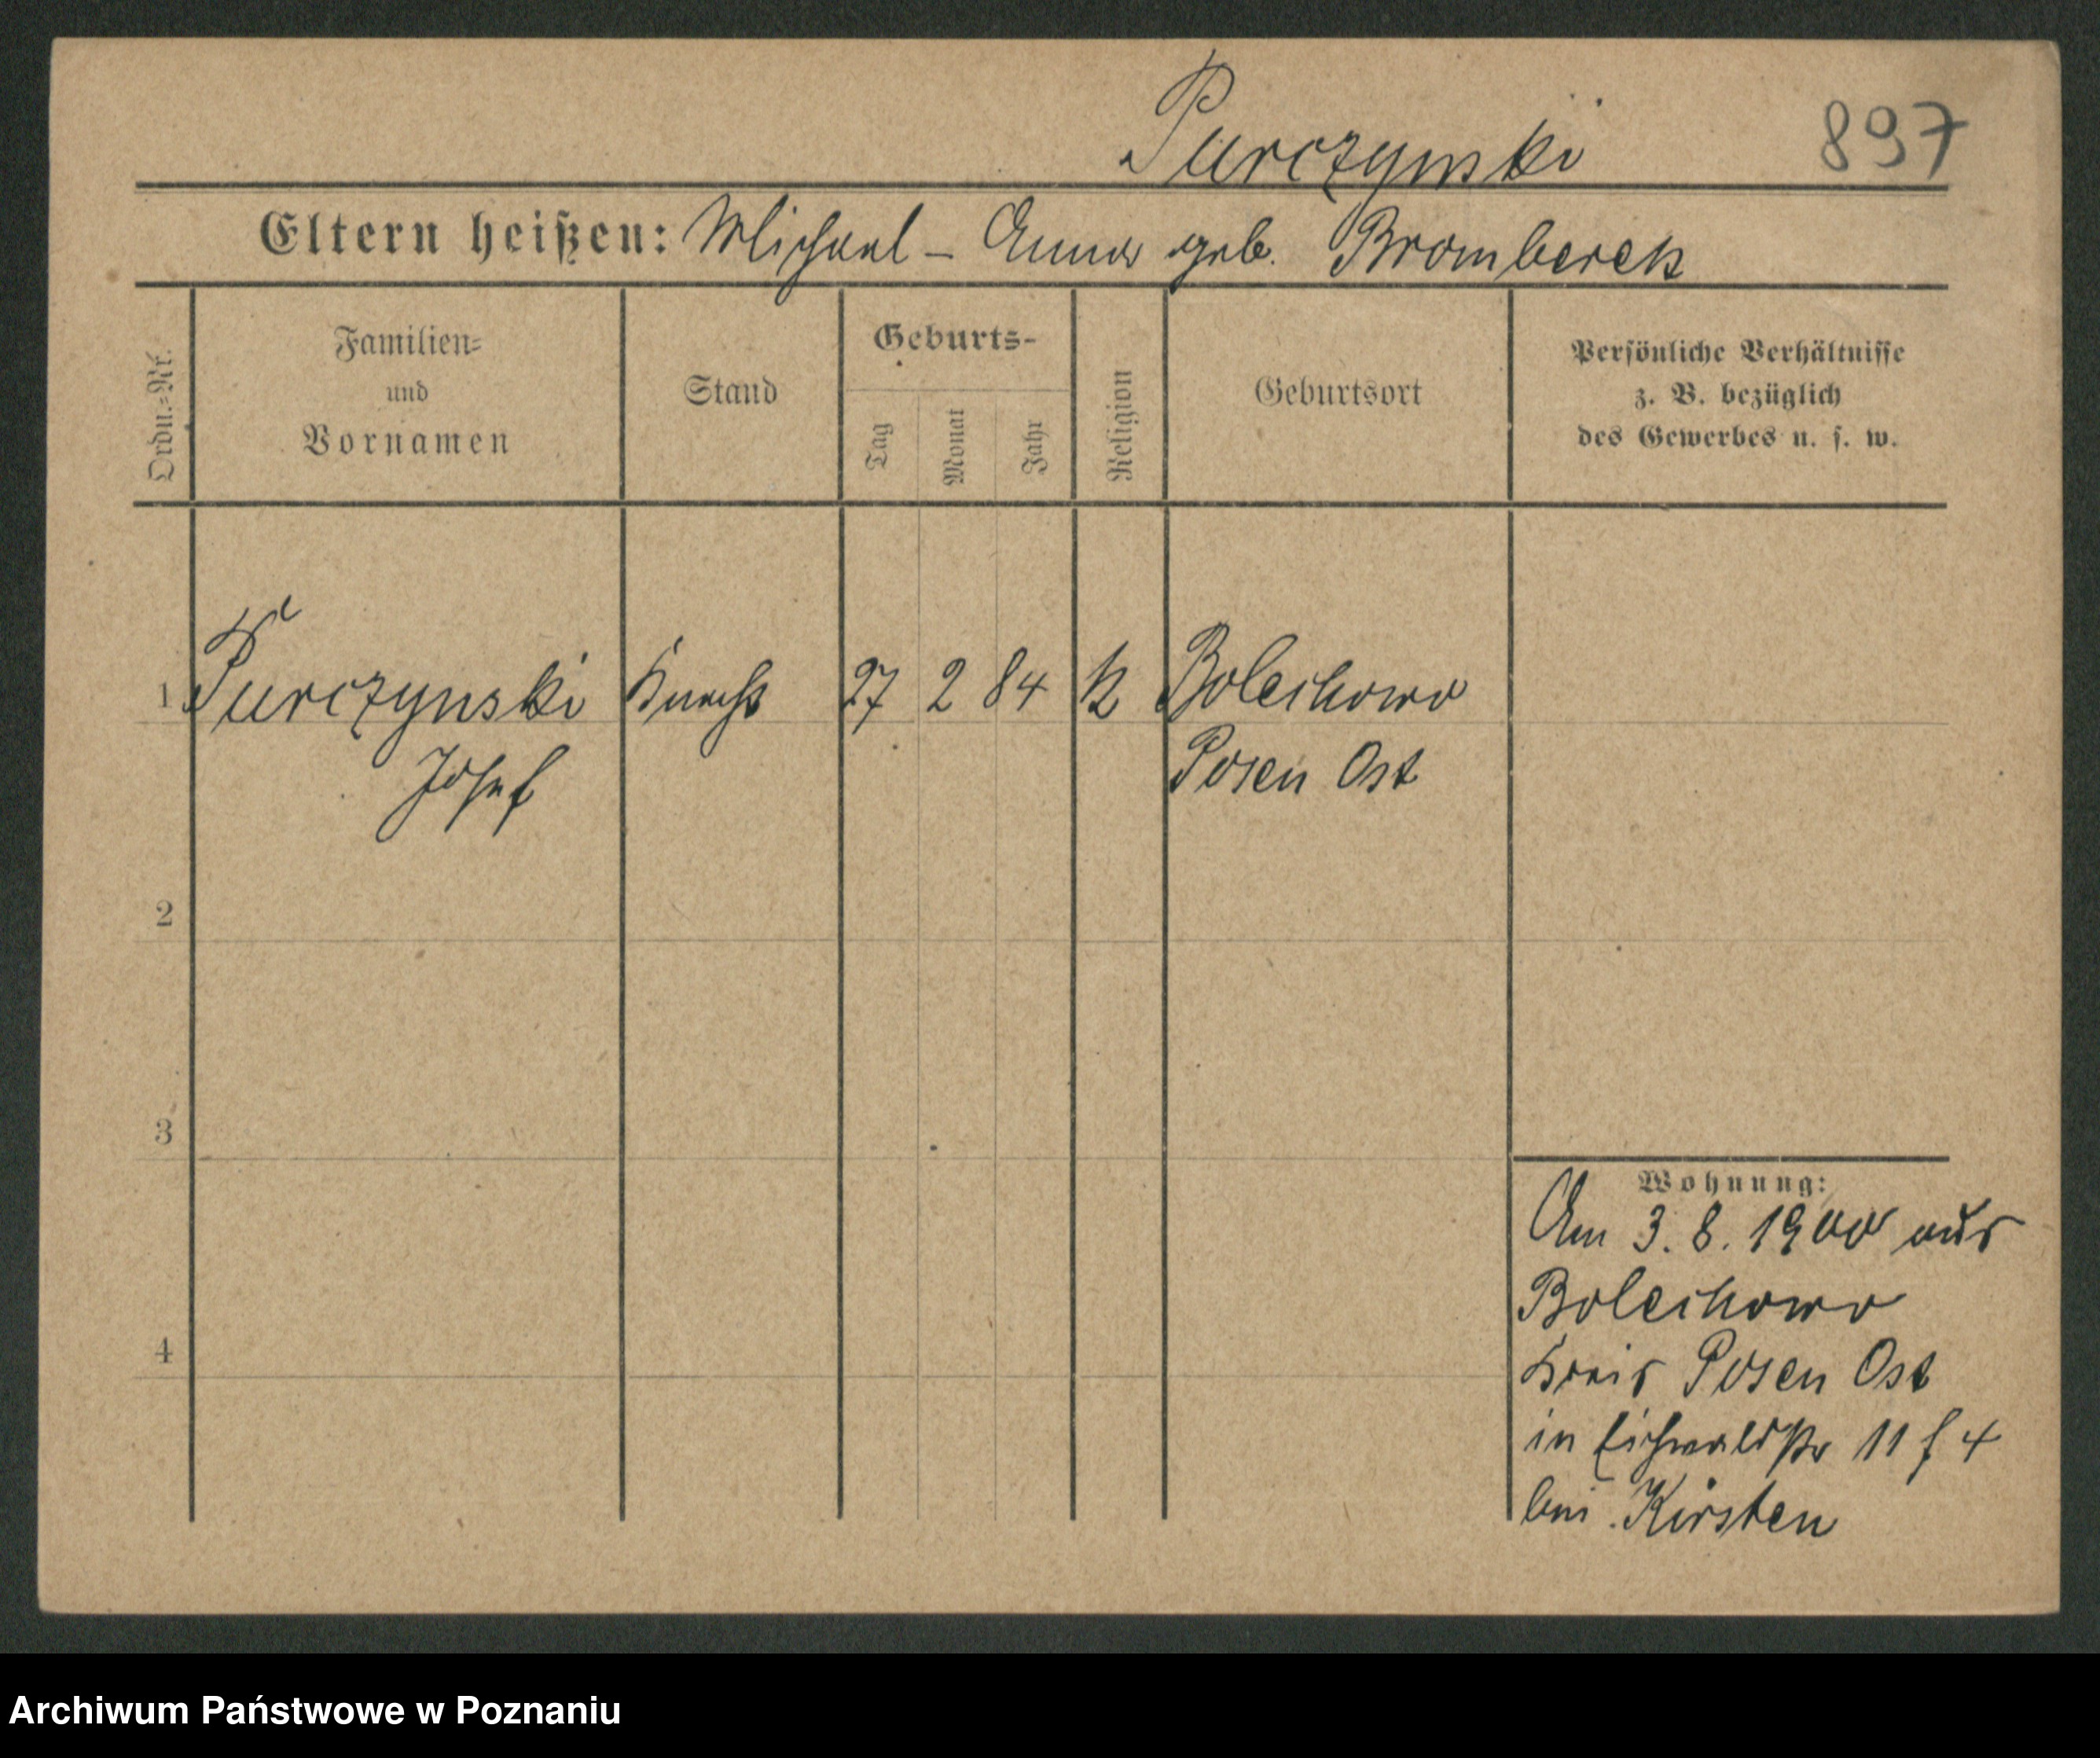 Purczynski 897
Eltern heißen: Michael - Anna geb. Bromberek
Ordn.=Nr.
Familien=
und
Vornamen
Stand
Geburts-
Tag
Monat
Jahr
Religion
Geburtsort
Persönliche Verhältnisse
z. B. bezüglich
des Gewerbes u. s. w.
1 Purczynski Knecht 27 2 84 k Bolechowo
Josef Posen Ost
2
3
4
Wohnung:
Am 3. 8. 1900 aus
Bolechowo
Kreis Posen Ost
in Eichwaldstr 11 f 4
bei Kirsten
Archiwum Państwowe w Poznaniu